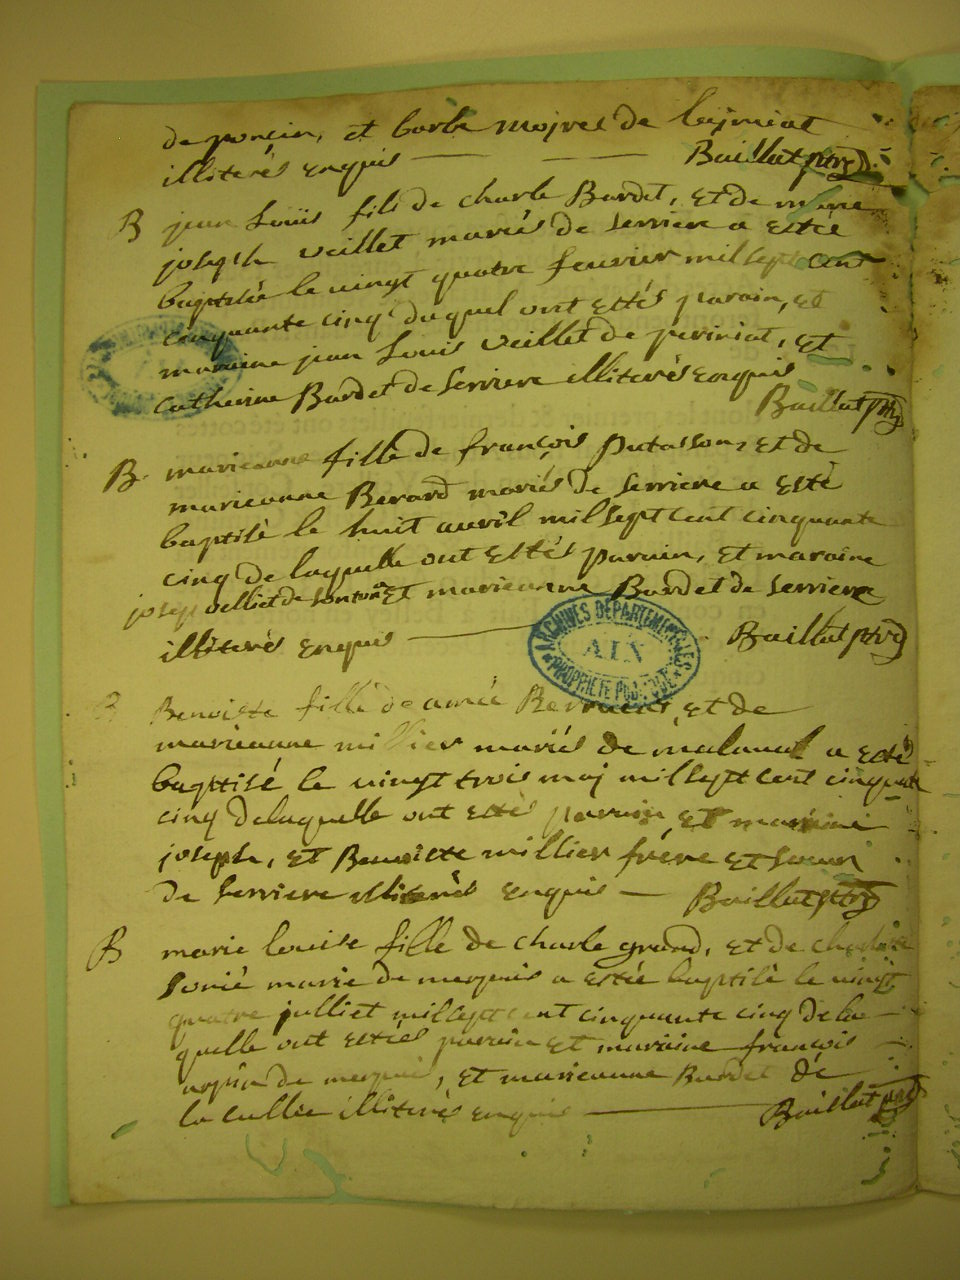 de poncin, et barbe moyret de leymiat
illiterés enquis Baillat ptre
B jean Loüis fils de charle Bardet, et de marie
joseph veillet mariés de serriere a estté
baptisée le vingt quatre feuvrier mil sept cent
cinquante cinq duquel ont ettés parain, et
maraine jean Louis veillet de periniat, et
catherine Bardet de serriere illiterés enquis
Baillat ptre
B marieanne fille de françois Putasson, et de
marieanne Berard mariés de serriere a esté
baptisé le huit auvril mil sept cent cinquante
cinq de laquelle ont estés parain, et maraine
joseph velliet de et marieanne Bardet de serriere
illiterés enquis Baillat ptre
ARCHIVES DEPARTEMENTALES
AIN
PROPRIETE PUBLIQUE
B Benoiste fille de amée et de
marieanne millier mariés de malaval a esté
baptisé le vingt trois maj mil sept cent cinquante
cinq delaquelle ont estés parain et maraine
joseph, et Benoiste millier frere et soeur
de serriere illiterés enquis Baillat ptre
B marie louise fille de charle grand, et de
marié de merpuis a estée baptisé le vingt
quatre julliet mil sept cent cinquante cinq de la
quelle ont estés parain et maraine françois
de merpuis, et marieanne Bardet de
la cullée illiterés enquis Baillat ptre